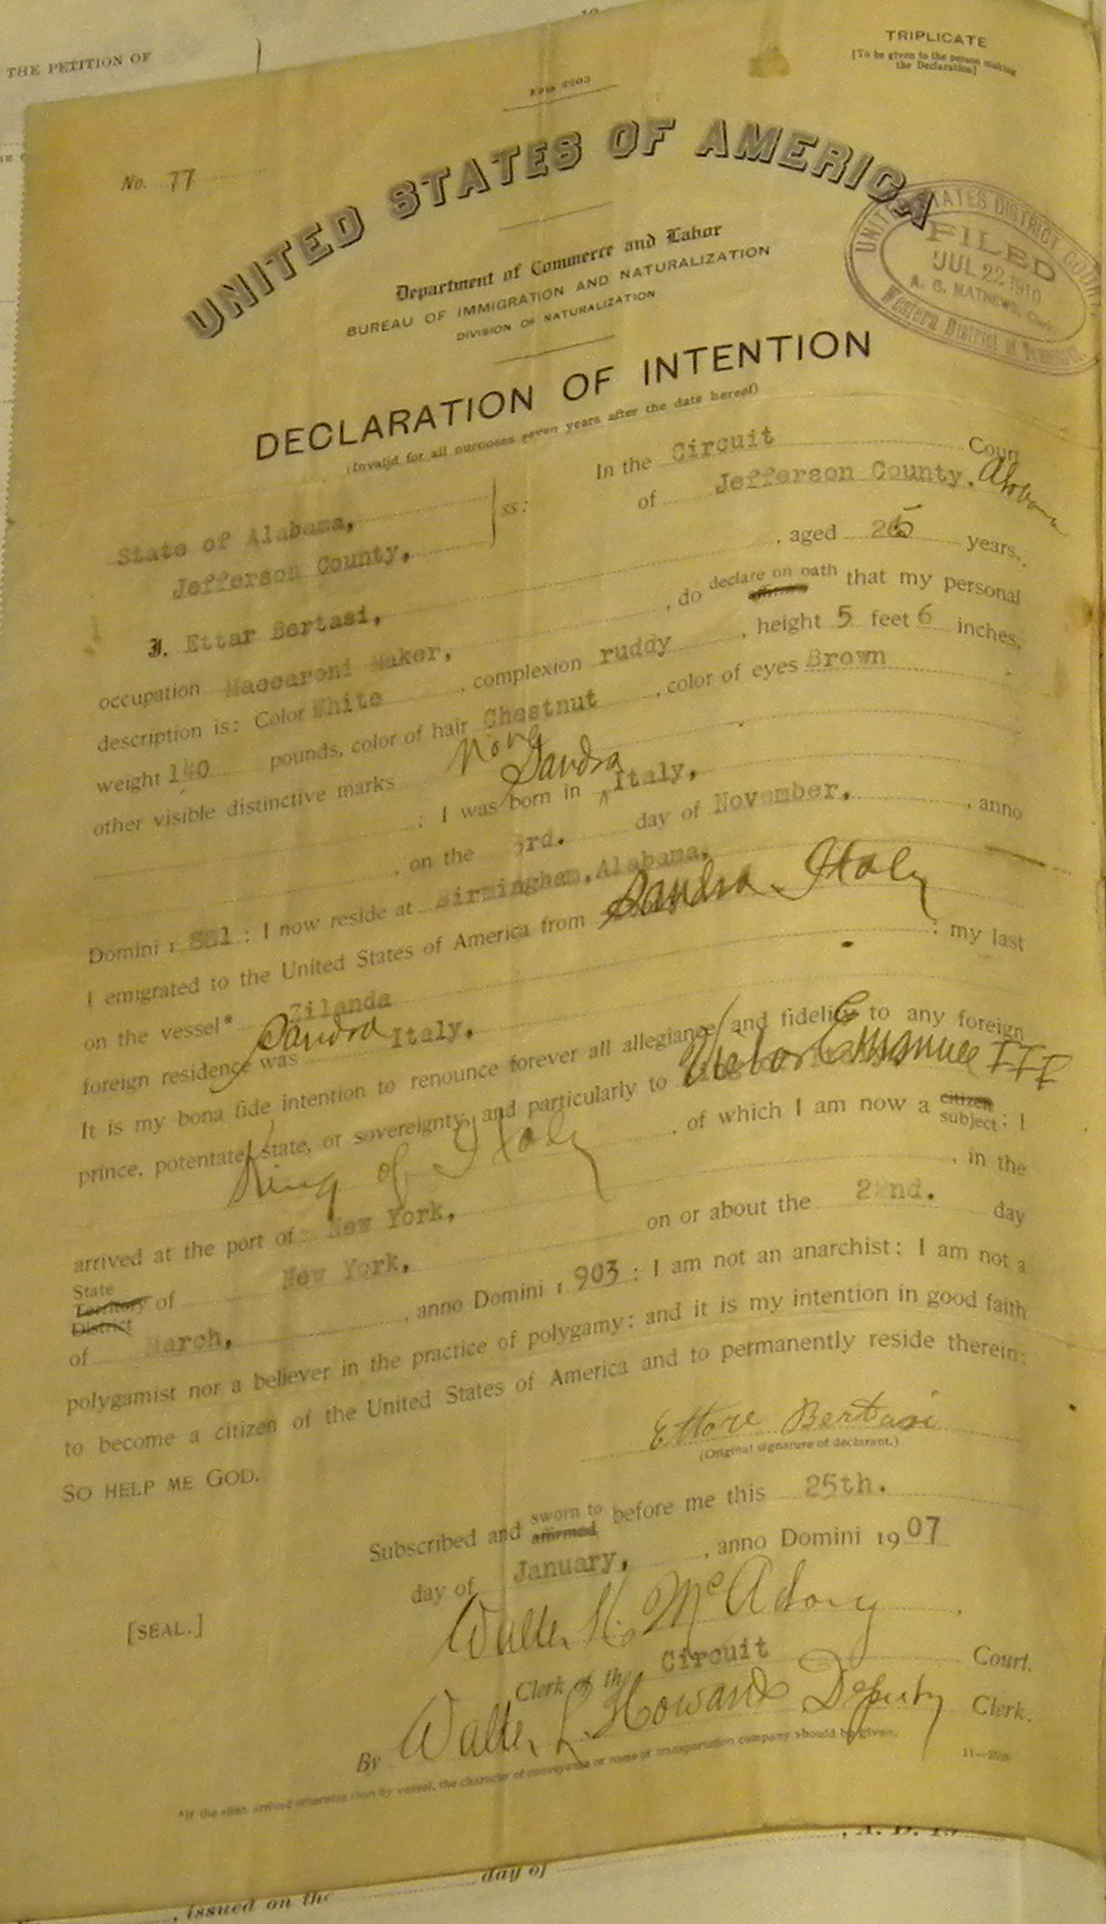 THE PETITION OF
TRIPLICATE
[To be given to the person making
the Declaration]
Form 2203
No. 77
UNITED STATES OF AMERICA
UNITED STATES DISTRICT COURT
FILED
JUL 22 1910
A. G. MATHEWS, Clerk
Western District of Tennessee
Department of Commerce and Labor
BUREAU OF IMMIGRATION AND NATURALIZATION
DIVISION OF NATURALIZATION
DECLARATION OF INTENTION
(Invalid for all purposes seven years after the date hereof)
In the Circuit Court
of Jefferson County. Alabama
State of Alabama,
Jefferson County,
ss:
I, Ettar Bertasi, , aged 25 years,
occupation Maccaroni Maker, , do declare on oath affirm that my personal
description is: Color White , complexion ruddy , height 5 feet 6 inches,
weight 140 pounds, color of hair Chestnut , color of eyes Brown
other visible distinctive marks None
; I was born in Sandra Italy,
, on the 3rd. day of November, , anno
Domini 1881 ; I now reside at Birmingham, Alabama,
I emigrated to the United States of America from Sandra Italy
on the vessel* Zilanda ; my last
foreign residence was Sandra Italy.
It is my bona fide intention to renounce forever all allegiance and fidelity to any foreign
prince, potentate, state, or sovereignty, and particularly to Victor Emmuel III
King of Italy , of which I am now a citizen subject; I
arrived at the port of New York, , in the
State Territory District of New York, on or about the 22nd. day
of March, , anno Domini 1903 ; I am not an anarchist; I am not a
polygamist nor a believer in the practice of polygamy; and it is my intention in good faith
to become a citizen of the United States of America and to permanently reside therein:
SO HELP ME GOD.
Ettore Bertasi
(Original signature of declarant.)
Subscribed and sworn to affirmed before me this 25th.
day of January, , anno Domini 1907
[SEAL.]
Walter K. McAdory
Clerk of the Circuit Court.
By Walter L. Howard Deputy Clerk.
*If the alien arrived otherwise than by vessel, the character of conveyance or name of transportation company should be given.
, A. D. 19
, issued on the day of